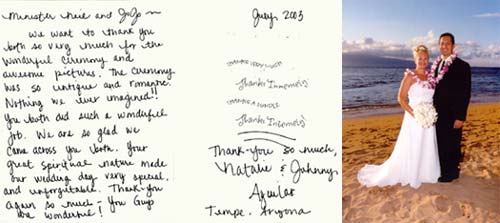 Minister and JoJo ~
We want to thank you
both so very much for the
wonderful ceremony and
awesome pictures. The ceremony
was so unique and romantic.
Nothing we ever imagined!!
You both did such a wonderful
job. We are so glad we
came across you both. Your
great spiritual nature made
our wedding day very special
and unforgettable. Thank-you
again so much - You Guys
are wonderful!
July, 2003
Thank-you so much,
Natalie & Johnny
Aguilar
Tempe, Aryona